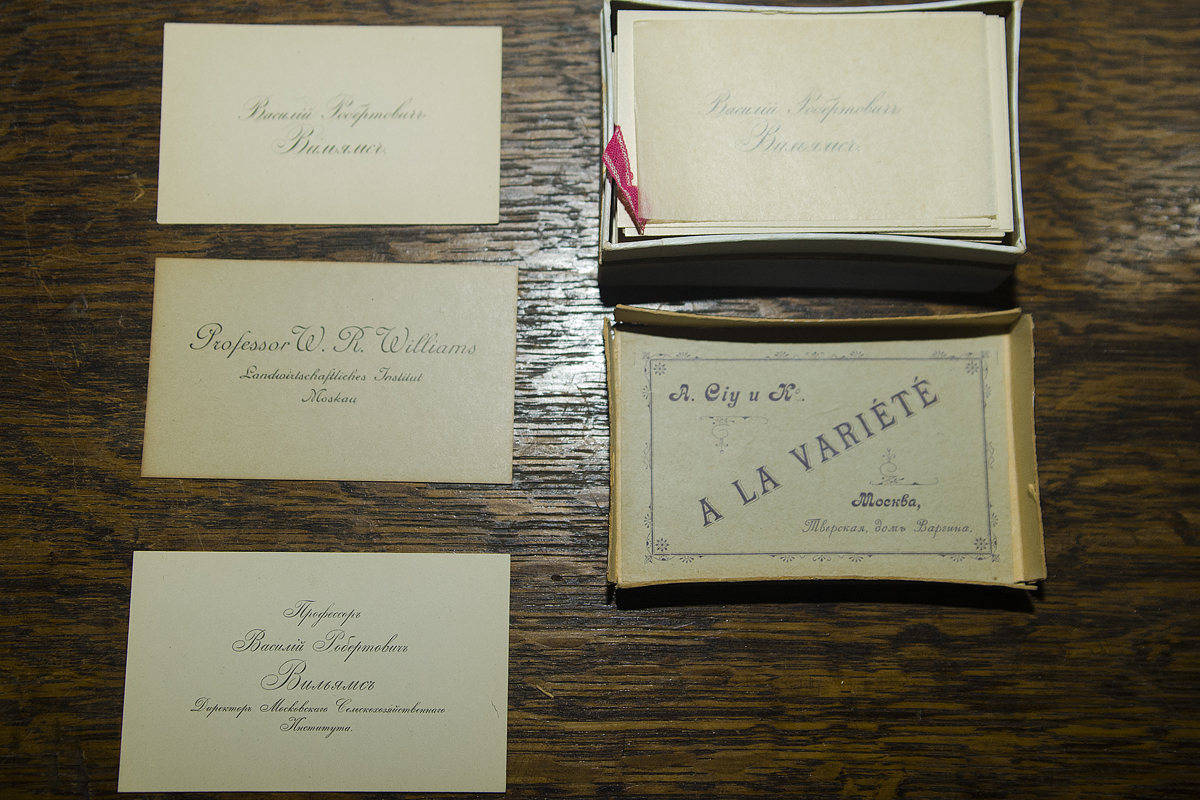 Василій Робертовичъ
Вильямсъ.
Professor W. R. Williams
Landwirtschaftliches Institut
Moskau
Профессоръ
Василій Робертовичъ
Вильямсъ
Директоръ Московскаго Сельскохозяйственнаго
Института.
Василій Робертовичъ
Вильямсъ.
А. Сіу и Кº.
A LA VARIÉTÉ
Москва,
Тверская, домъ Варгина.